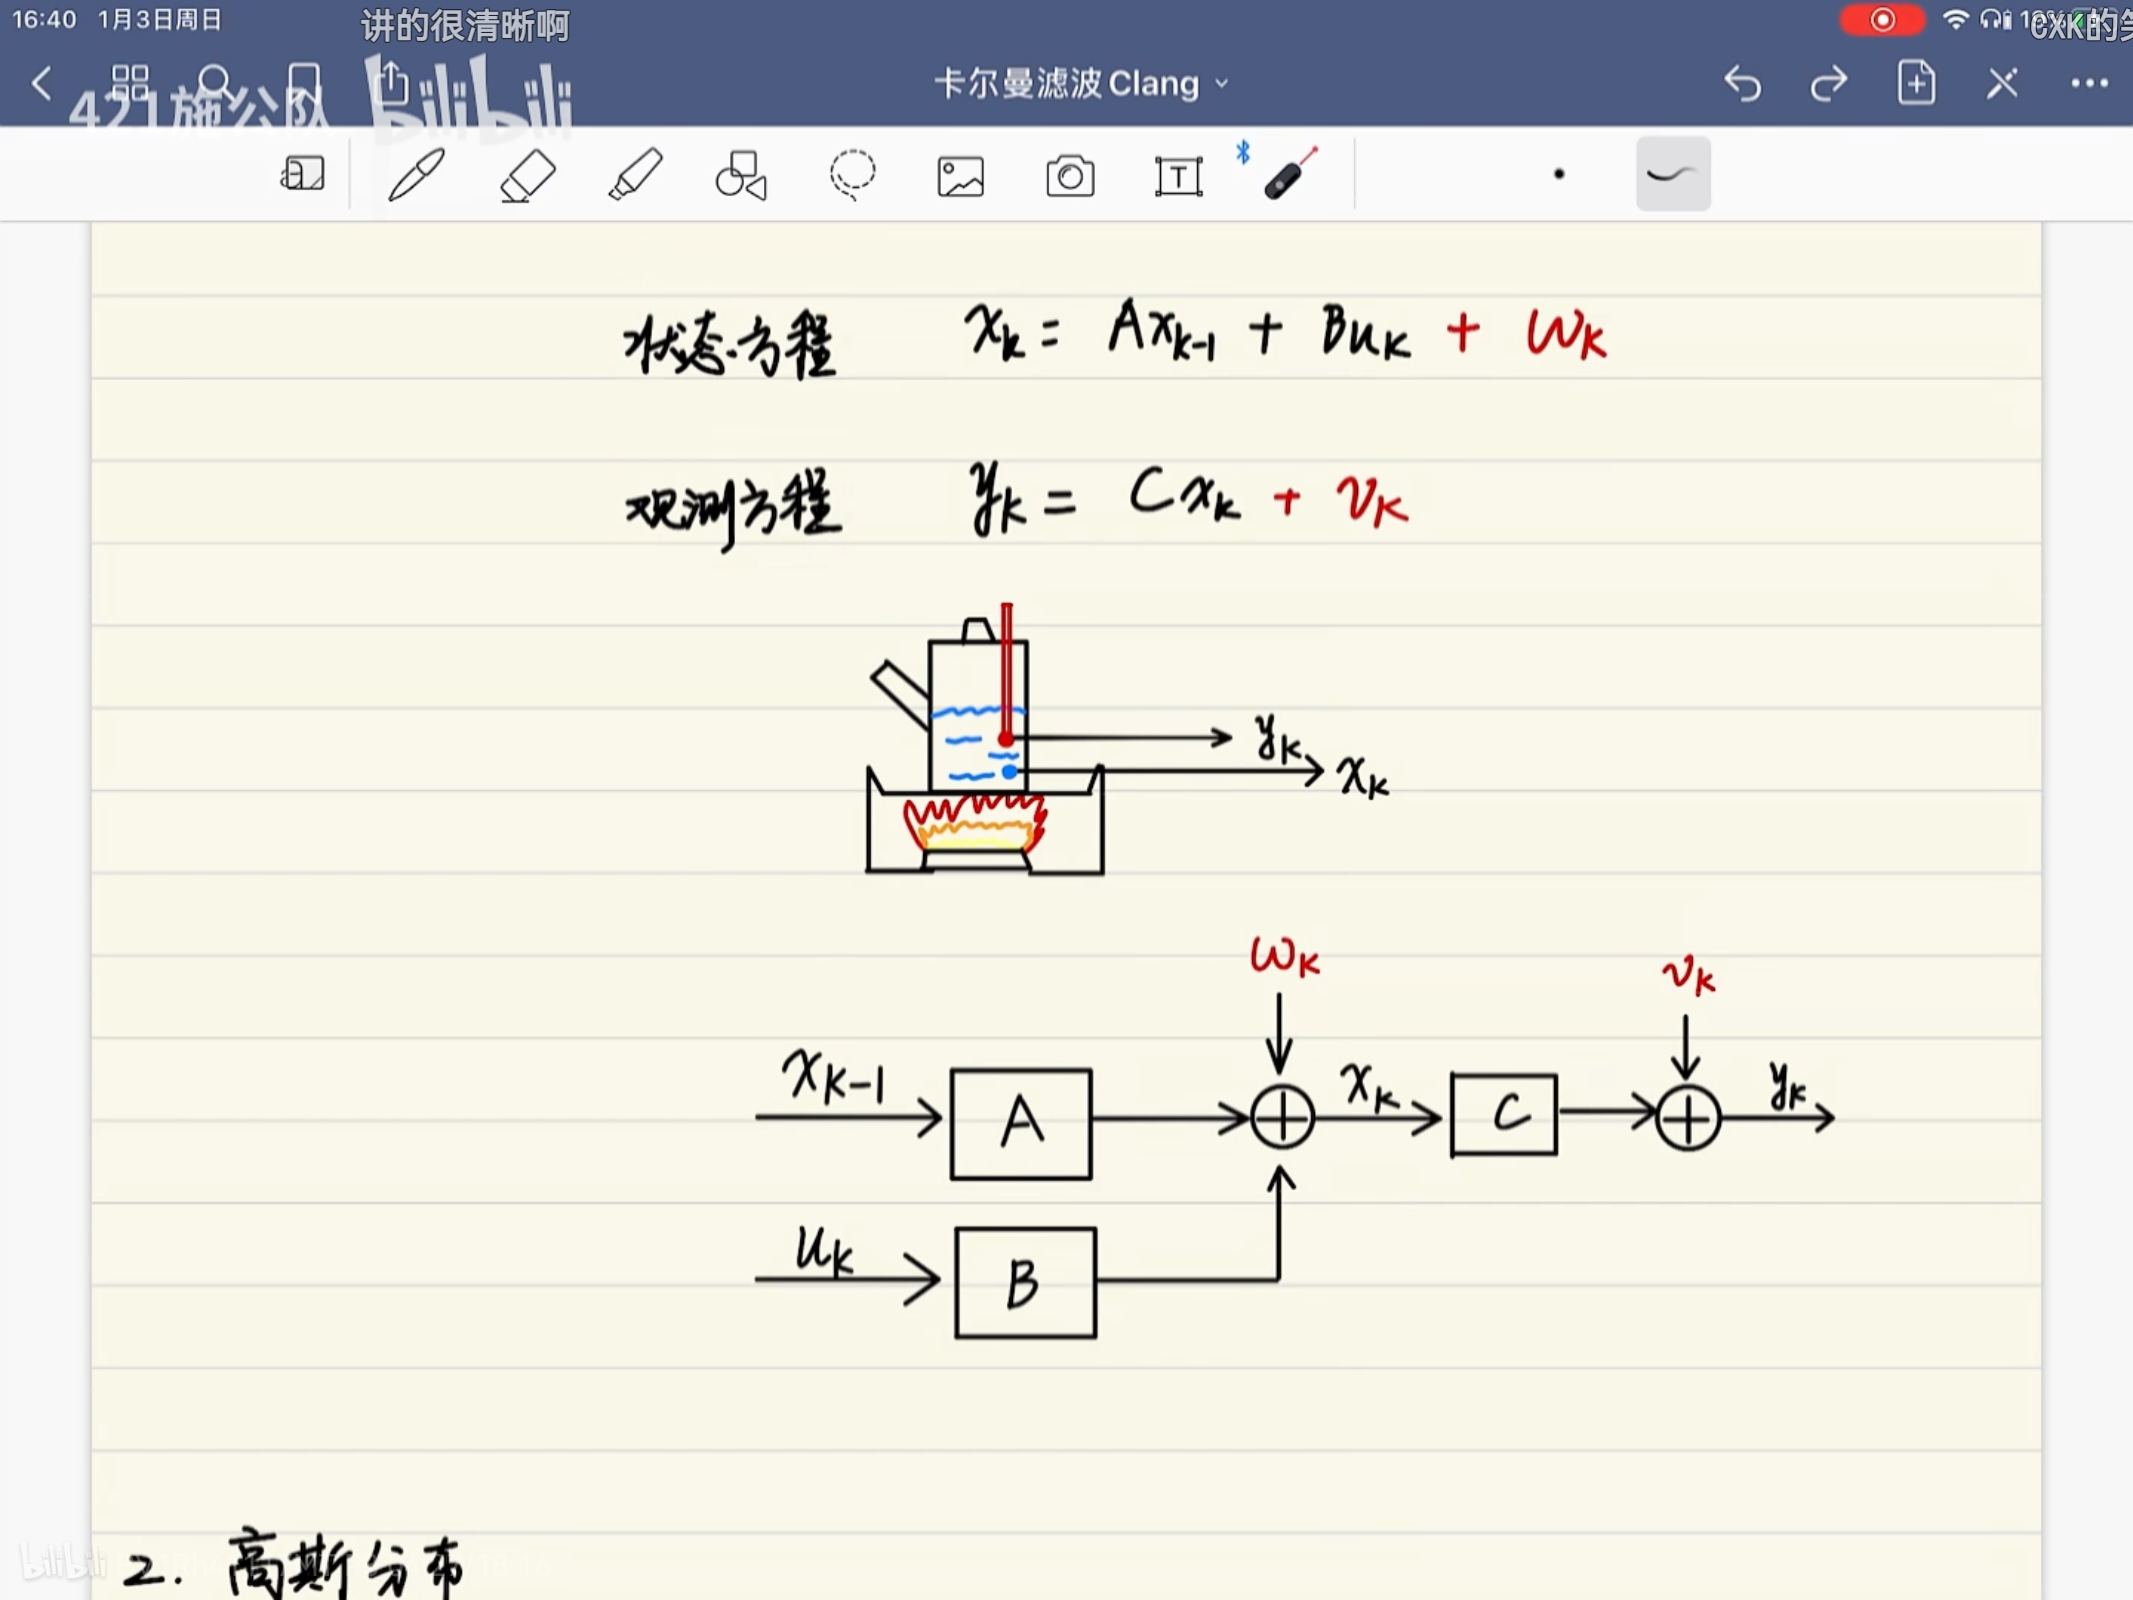 16:40 1月3日周日
讲的很清晰啊
CXK的笑
421施公队 bilibili
卡尔曼滤波Clang
T
状态方程 x_k = Ax_{k-1} + Bu_k + w_k
观测方程 y_k = Cx_k + v_k
y_k
x_k
w_k
v_k
x_{k-1} A x_k C y_k
u_k B
bilibili
2. 高斯分布